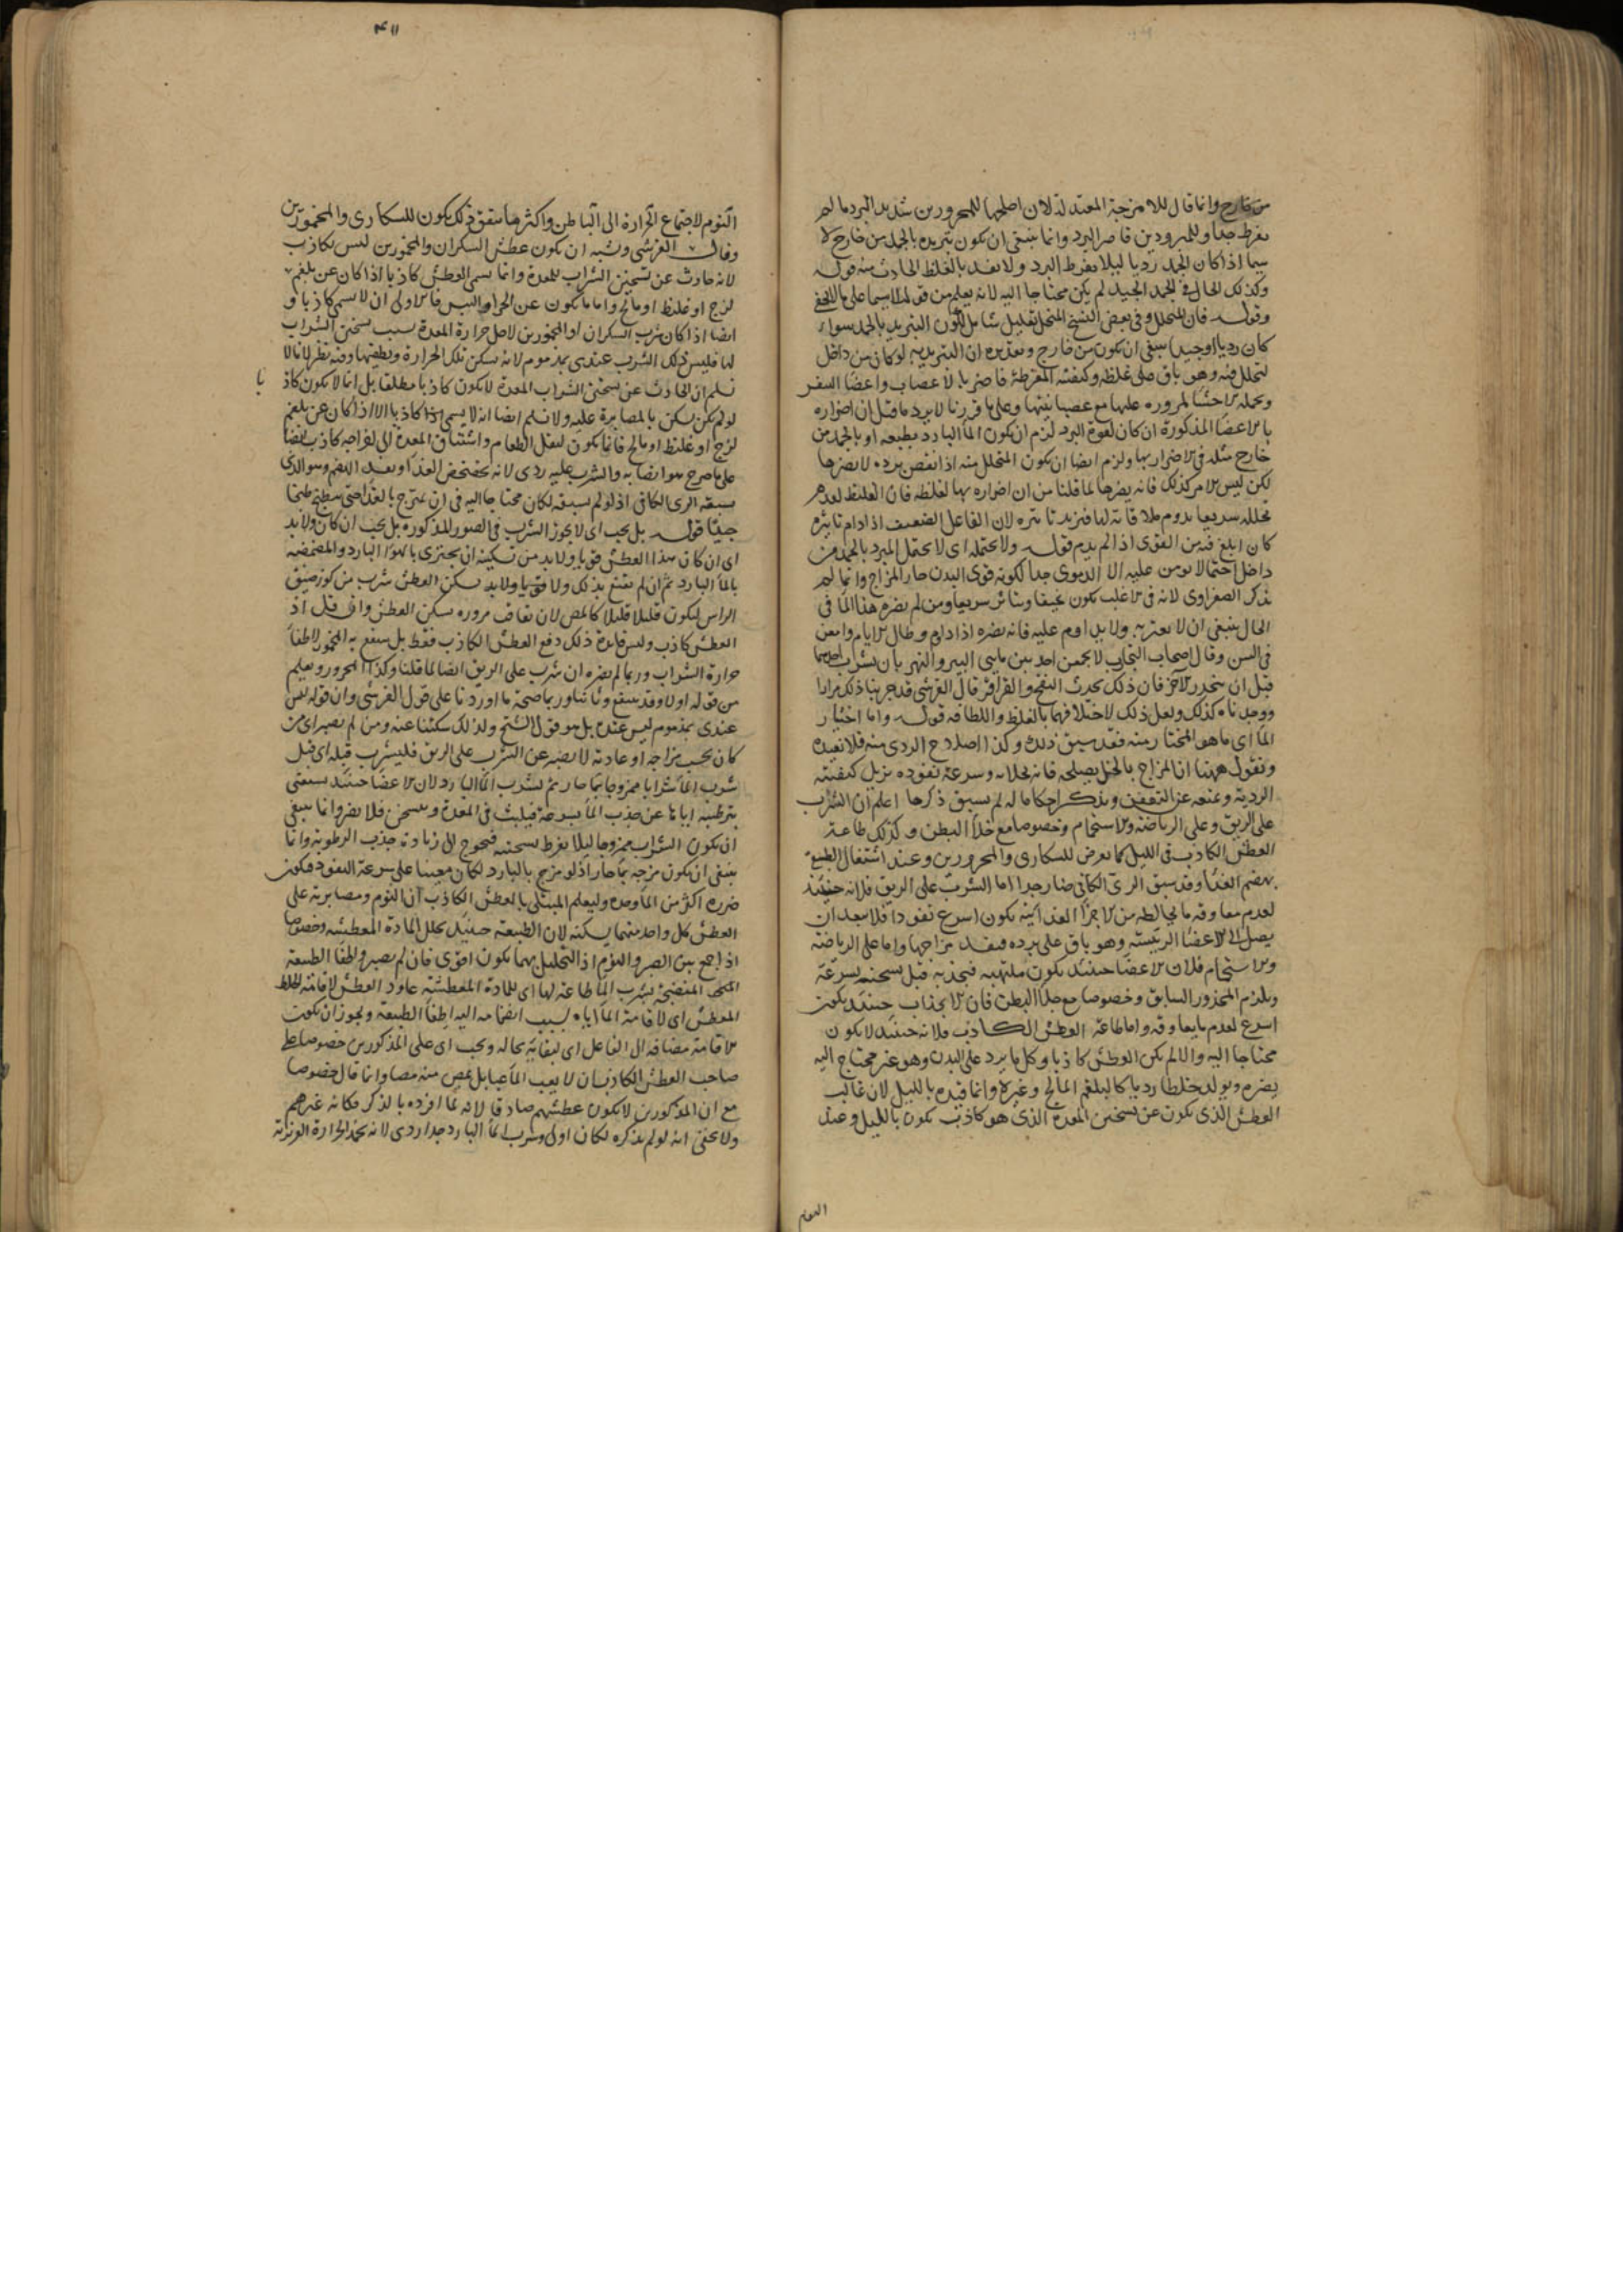 من خارج وانما قال للامزجة المعتدلة لان اصلحها للمحرورين شديد البرد ما لم
يفرط جدا وللمبرودين قاصر البرد وانما ينبغى ان يكون تبريده بالجمد من خارج لا
سيما اذا كان الجمد رديا ليلا يفرط البرد ولا يفسد بالغلظ الحادث منه قوله
وكذلك الحال فى الجمد الجيد لم يكن محتاجا اليه لانه يعلم من قوله لا سيما على ما لا يخفى
وقوله فان المتحلل وفى بعض النسخ المتحلل تعليل شامل لكون التبريد بالجمد سواء
كان رديا او جيدا ينبغى ان يكون من خارج وتقديره ان التبريد به لو كان من داخل
لتحلل فيه وهو باق على غلظه وكيفيته المفرطة فاضر بالاعصاب واعضا النفس
وبجملة الاحشا لمروره عليها مع عصبانيتها وعلى ما قررنا لا يرد ما قيل ان اضراره
بالاعضا المذكورة ان كان لقوة البرد لزم ان يكون الماء البارد بطبعه او بالجمد من
خارج مثله فى الاضرار بها ولزم ايضا ان يكون المتحلل منه اذا نقص برده لا يضرها
لكن ليس الامر كذلك فانه يضرها لما قلنا من ان اضراره بها لغلظه فان الغليظ لعدم
تحلله سريعا يدوم ملاقاته لها فيزيد تاثيره لان الفاعل الضعيف اذا دام تاثيره
كان ابلغ فيه من القوى اذا لم يدم قوله ولا يحتمله اى لا يحتمل المبرد بالجمد من
داخل احتمالا يومن عليه الا الدموى جدا لكونه قوى البدن حار المزاج وانما لم
يذكر الصفراوى لانه فى الاغلب يكون نحيفا ويتاثر سريعا ومن لم يضره هذا الماء فى
الحال ينبغى ان لا يغتر به ولا يداوم عليه فانه يضره اذا دام وطال الايام وامعن
فى السن وقال اصحاب التجارب لا يجمعن احد بين مايى البير والنهر بان يشرب احدهما
قبل ان ينحدر الاخر فان ذلك يحدث النفخ والقراقر قال القرشى قد جربنا ذلك مرارا
ووجدناه كذلك ولعل ذلك لاختلافهما بالغلظ واللطافة قوله واما اختيار
الماء اى ما هو المختار منه فقد سبق ذلك وكذا اصلاح الردى منه فلا نعيده
ونقول ههنا ان المزاج بالخل يصلحه فانه بجلائه وسرعة نفوذه يزيل كيفيته
الردية ويمنعه عن التعفن ونذكر احكاما له لم يسبق ذكرها اعلم ان الشرب
على الريق وعلى الرياضة والاستحمام وخصوصا مع خلاء البطن وكذلك طاعة
العطش الكاذب فى الليل كما يعرض للسكارى والمحرورين وعند اشتغال الطبيعة
بهضم الغذاء وقد سبق الرى الكافى ضار جدا اما الشرب على الريق فلانه حينئذ
لعدم معاوقة ما يخالطه من الاجزاء الغذائية يكون اسرع نفوذا فلا يبعد ان
يصل الى الاعضاء الرئيسة وهو باق على برده فيفسد مزاجها واما على الرياضة
والاستحمام فلان الاعضاء حينئذ يكون ملتهبة فتجذبه قبل تسخنه بسرعة
ويلزم المحذور السابق وخصوصا مع خلاء البطن فان الانجذاب حينئذ يكون
اسرع لعدم ما يعاوقه واما طاعة العطش الكاذب فلانه حينئذ لا يكون
محتاجا اليه والا لم يكن العطش كاذبا وكل ما يرد على البدن وهو غير محتاج اليه
يضره ويولد خلطا رديا كالبلغم المالح وغيره وانما قيده بالليل لان غالب
العطش الذى يكون عن تسخين المعدة الذى هو كاذب يكون بالليل وعند
النوم
۴۱۱
النوم لاجتماع الحرارة الى الباطن واكثر ما يتفق ذلك يكون للسكارى والمخمورين
وقال القرشى ويشبه ان يكون عطش السكران والمخمورين ليس بكاذب
لانه حادث عن تسخين الشراب للمعدة وانما يسمى العطش كاذبا اذا كان عن بلغم
لزج او غليظ او مالح واما ما يكون عن الحر او اليبس فالاولى ان لا يسمى كاذبا و
ايضا اذا كان شرب السكران او المخمورين لاجل حرارة المعدة بسبب تسخين الشراب
لها فليس ذلك الشرب عندى بمذموم لانه يسكن تلك الحرارة ويطفيها وفيه نظر لانا لا
نسلم ان الحادث عن تسخين الشراب المعدة لا يكون كاذبا مطلقا بل انما لا يكون كاذ
با
لو لم يكن يسكن بالمصابرة عليه ولا نسلم ايضا انه لا يسمى هذا كاذبا الا اذا كان عن بلغم
لزج او غليظ او مالح فانما يكون لثقل الطعام واشتياق المعدة الى لفراصه كاذب ايضا
على ما صرح هو ايضا به والشرب عليه ردى لانه يخضخض الغذاء ويفسد الهضم وهو الذى
يسبقه الرى الكافى اذ لو لم يسبقه لكان محتاجا اليه فى ان يمتزج بالغذاء حتى ينطبخ طبخا
جيدا قوله بل يجب اى لا يجوز الشرب فى الصور المذكورة بل يجب ان كان ولا بد
اى ان كان هذا العطش قويا ولا بد من تسكينه ان يجتزى بالهواء البارد والمضمضة
بالماء البارد ثم ان لم يقنع بذلك ولا قويا ولا بد يسكن العطش شرب من كوز ضيق
الراس ليكون قليلا قليلا كالمص لان تعاقب مروره يسكن العطش وان قيل اذ
العطش كاذب وليس فائدة ذلك دفع العطش الكاذب فقط بل ينتفع به المخمور لاطفاء
حرارة الشراب وربما لم يضره ان شرب على الريق ايضا لما قلنا وكذا المحرور ويعلم
من قوله اولا وقد ينتفع وثانيا وربما صحة ما اوردنا على قول القرشى وان قوله ليس
عندى بمذموم ليس عنده بل هو قول الشيخ ولذلك سكتنا عنه ومن لم يصبر اى من
كان بحسب مزاجه او عادته لا يصبر عن الشرب على الريق فليشرب قبله اى قبل
شرب الماء شرابا ممزوجا بماء حار ثم يشرب الماء البارد لان الاعضاء حينئذ يستغنى
بترطيبه اياها عن جذب الماء بسرعة فيلبث فى المعدة ويتسخن فلا يضر وانما ينبغى
ان يكون الشراب ممزوجا ليلا يفرط تسخينه فيحوج الى زيادة جذب الرطوبة وانما
ينبغى ان يكون مزجه بماء حار اذ لو مزج بالبارد لكان معينا على سرعة النفوذ فيكون
ضرره اكثر من الماء وحده وليعلم المبتلى بالعطش الكاذب ان النوم ومصابرته على
العطش كل واحد منهما يسكنه لان الطبيعة حينئذ تحلل المادة المعطشة وخصوصا
اذا جمع بين الصبر والنوم اذ التحليل بهما يكون اقوى فان لم يصبر واطفا الطبيعة
المنضجة بشرب الماء طاعة لها اى للمادة المعطشة عاود العطش لاقامته الخلط
المعطش اى لاقامة الماء اياه بسبب انضمامه اليه اطفاء الطبيعة ويجوز ان يكون
الاقامة مضافة الى الفاعل اى لبقائه بحاله ويجب اى على المذكورين خصوصا على
صاحب العطش الكاذب ان لا يعب الماء عبا بل يمص منه مصا وانما قال خصوصا
مع ان المذكورين لا يكون عطشهم صادقا لانه لما افرده بالذكر فكانه غيرهم
ولا يخفى انه لو لم يذكره لكان اولى وشرب الماء البارد جدا ردى لانه يخمد الحرارة الغريزية